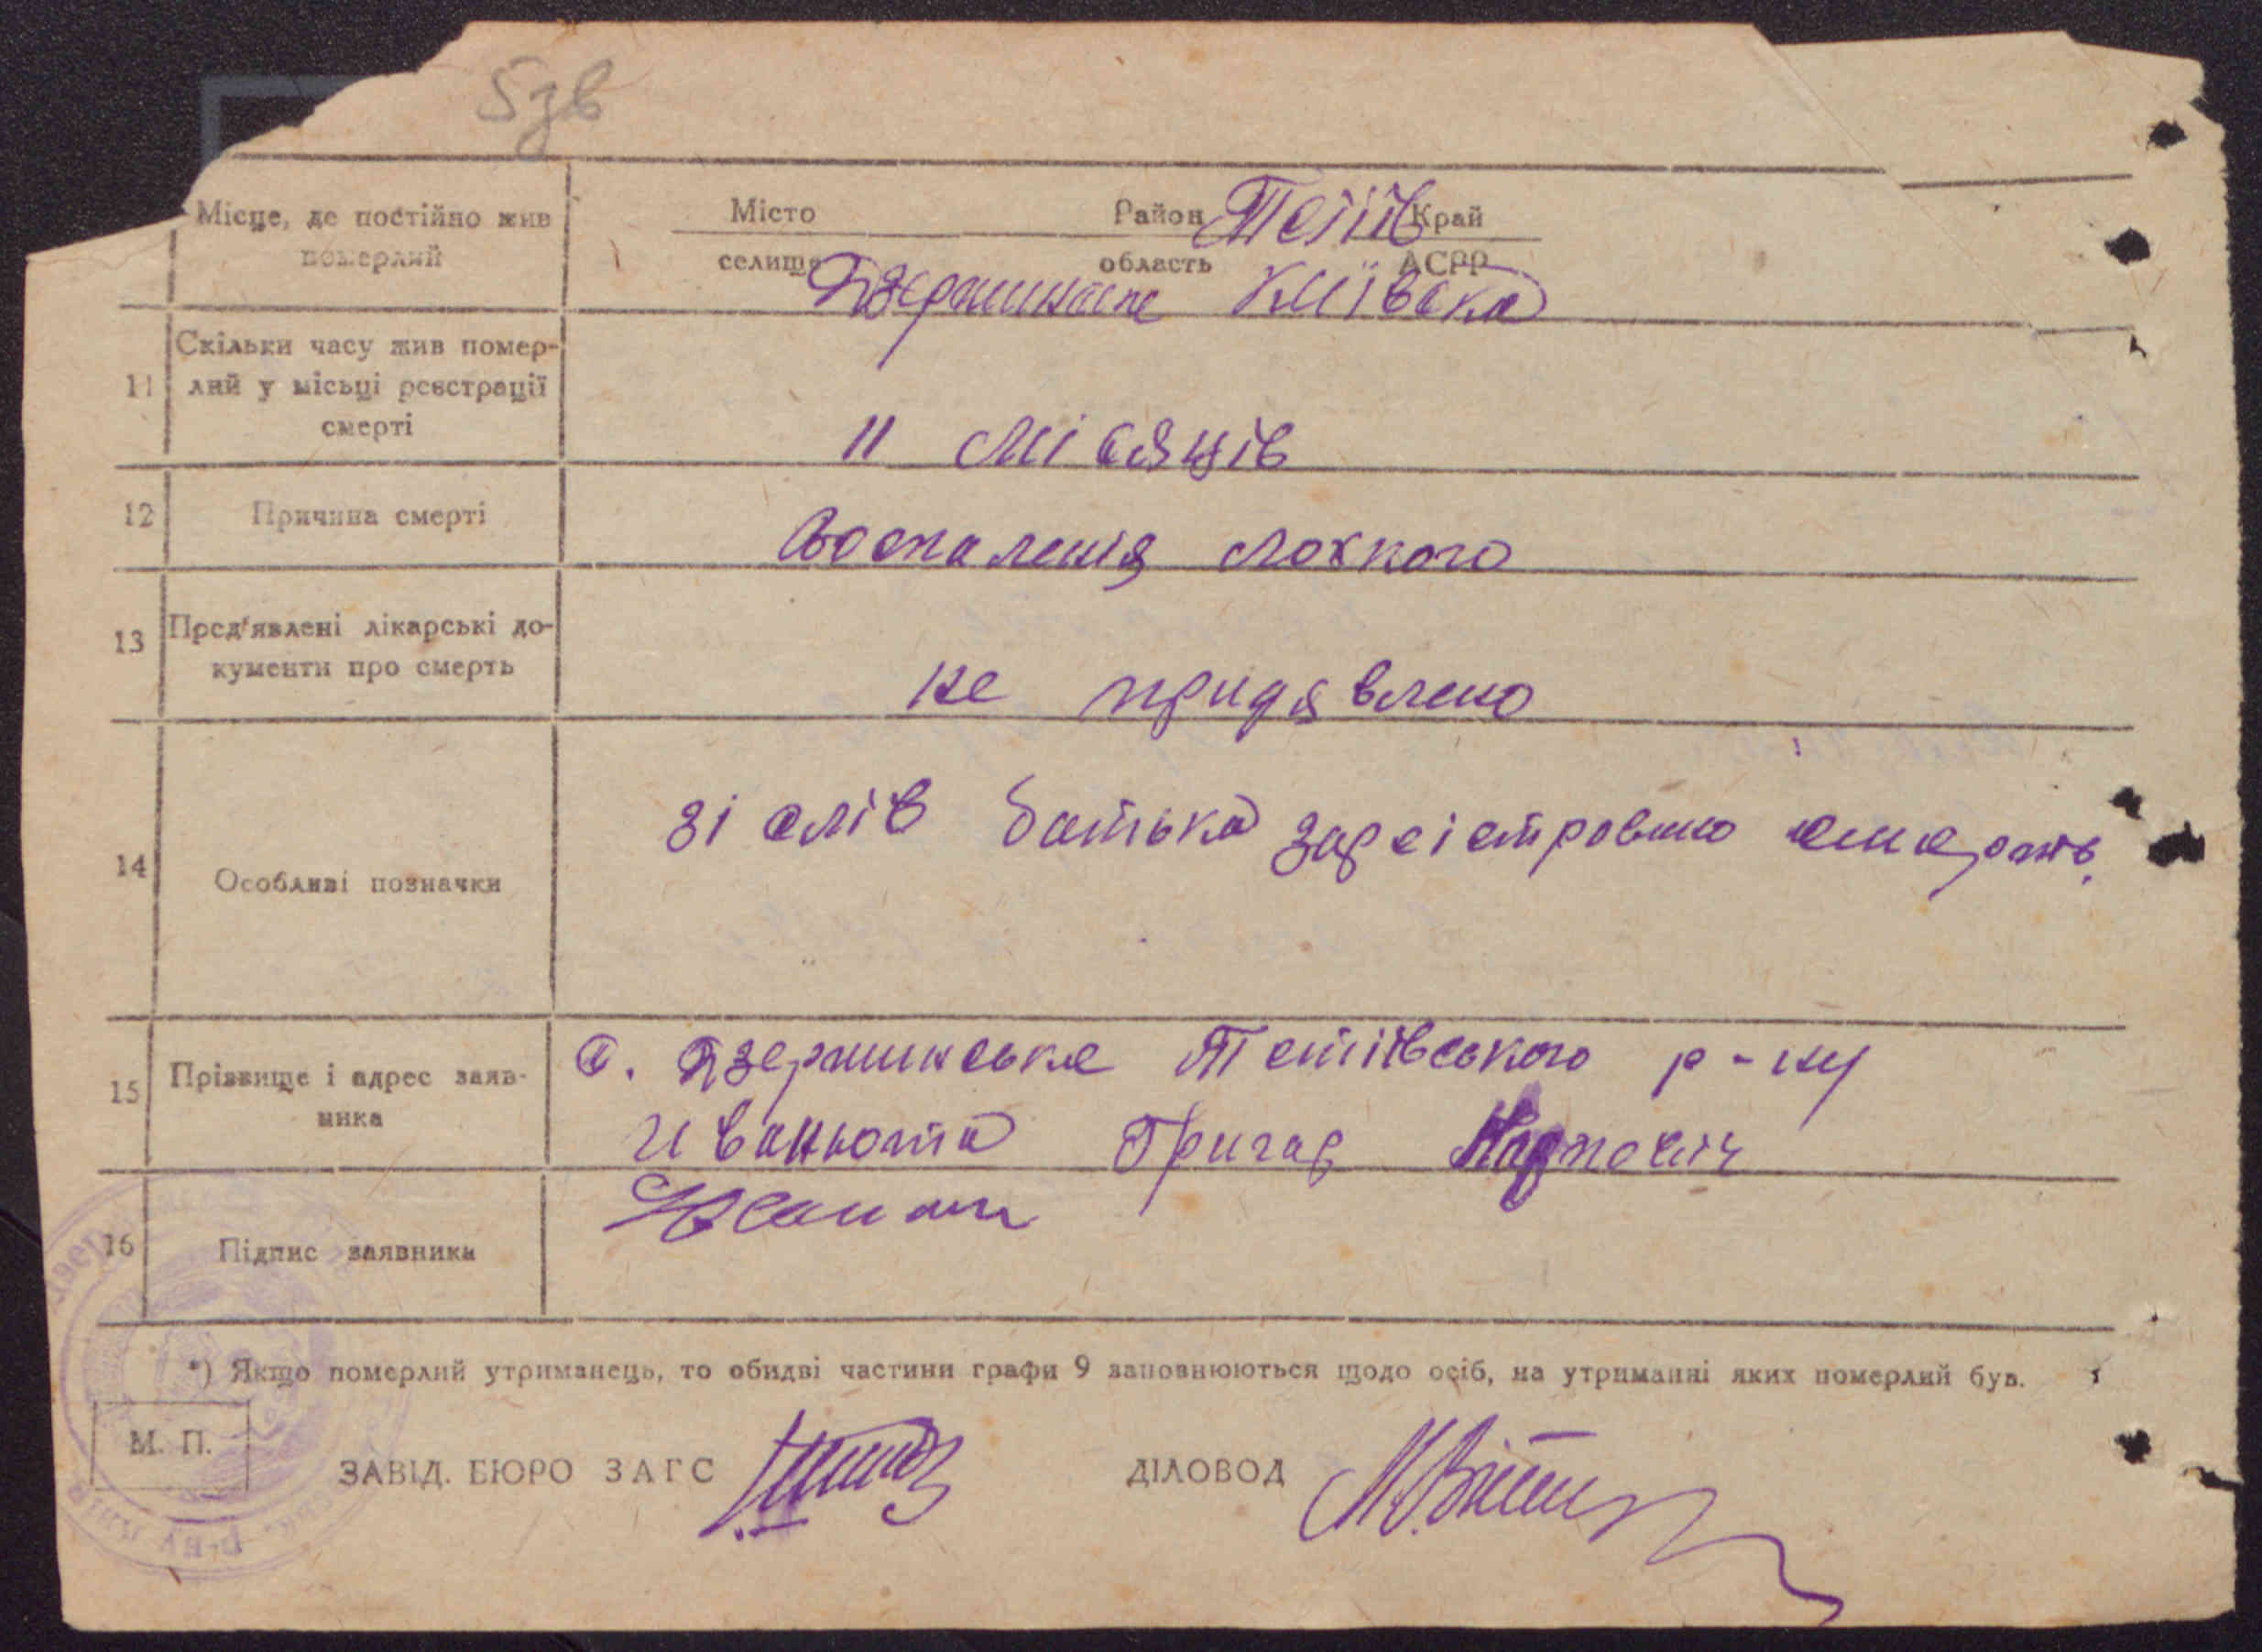 5зв
Місце, де постійно жив
померлий
Місто Район Тетіїв Край
селище область АСРР
Дзержинське Київська
11 Скільки часу жив помер-
лий у місьці реєстрації
смерті
11 місяців
12 Причина смерті
Воспаленія лохкого
13 Пред'явлені лікарські до-
кументи про смерть
не придявлено
14 Особливі позначки
зі слів батька зареістровано смерть.
15 Прізвище і адрес заяв-
ника
с. Дзержинське Тетіївського р-ну
Иванюта Григор Карпович
16 Підпис заявника
*) Якщо померлий утриманець, то обидві частини графи 9 заповнюються щодо осіб, на утриманні яких померлий був.
М. П.
ЗАВІД. БЮРО ЗАГС ДІЛОВОД